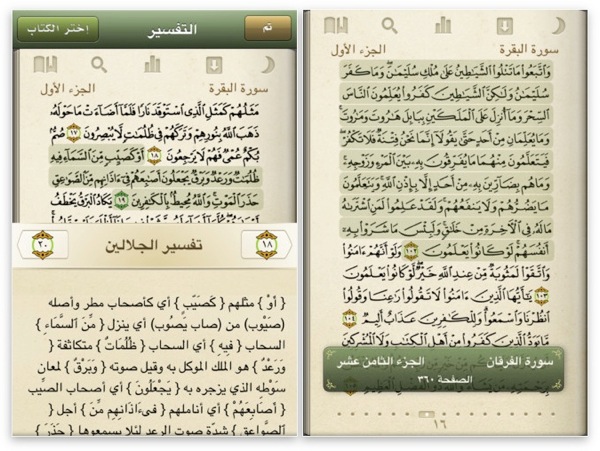 تم التفسير إختر الكتاب
سورة البقرة الجزء الأول
مَثَلُهُمْ كَمَثَلِ الَّذِي اسْتَوْقَدَ نَارًا فَلَمَّا أَضَاءَتْ مَا حَوْلَهُ
ذَهَبَ اللَّهُ بِنُورِهِمْ وَتَرَكَهُمْ فِي ظُلُمَاتٍ لَّا يُبْصِرُونَ ١٧ صُمٌّ
بُكْمٌ عُمْيٌ فَهُمْ لَا يَرْجِعُونَ ١٨ أَوْ كَصَيِّبٍ مِّنَ السَّمَاءِ فِيهِ
ظُلُمَاتٌ وَرَعْدٌ وَبَرْقٌ يَجْعَلُونَ أَصَابِعَهُمْ فِي آذَانِهِم مِّنَ الصَّوَاعِقِ
حَذَرَ الْمَوْتِ وَاللَّهُ مُحِيطٌ بِالْكَافِرِينَ ١٩ يَكَادُ الْبَرْقُ يَخْطَفُ
١٨ تفسير الجلالين ٢٠
{ أَوْ } مثلهم { كَصَيِّبٍ } أي كأصحاب مطر وأصله
(صَيْوِب) من (صاب يَصُوب) أي ينزل { مِّنَ السَّمَاءِ }
أي السحاب { فِيهِ } أي السحاب { ظُلُمَاتٌ } متكاثفة {
وَرَعْدٌ } هو الملك الموكل به وقيل صوته { وَبَرْقٌ } لمعان
سَوْطه الذي يزجره به { يَجْعَلُونَ } أي أصحاب الصيِّب
{ أَصَابِعَهُمْ } أي أناملهم { فِي آذَانِهِم مِّنَ } أجل {
الصَّوَاعِقِ } شدة صوت الرعد لئلا يسمعوها { حَذَرَ }
سورة البقرة الجزء الأول
وَاتَّبَعُوا مَا تَتْلُوا الشَّيَاطِينُ عَلَىٰ مُلْكِ سُلَيْمَانَ وَمَا كَفَرَ
سُلَيْمَانُ وَلَٰكِنَّ الشَّيَاطِينَ كَفَرُوا يُعَلِّمُونَ النَّاسَ
السِّحْرَ وَمَا أُنزِلَ عَلَى الْمَلَكَيْنِ بِبَابِلَ هَارُوتَ وَمَارُوتَ
وَمَا يُعَلِّمَانِ مِنْ أَحَدٍ حَتَّىٰ يَقُولَا إِنَّمَا نَحْنُ فِتْنَةٌ فَلَا تَكْفُرْ
فَيَتَعَلَّمُونَ مِنْهُمَا مَا يُفَرِّقُونَ بِهِ بَيْنَ الْمَرْءِ وَزَوْجِهِ
وَمَا هُم بِضَارِّينَ بِهِ مِنْ أَحَدٍ إِلَّا بِإِذْنِ اللَّهِ وَيَتَعَلَّمُونَ
مَا يَضُرُّهُمْ وَلَا يَنفَعُهُمْ وَلَقَدْ عَلِمُوا لَمَنِ اشْتَرَاهُ
مَا لَهُ فِي الْآخِرَةِ مِنْ خَلَاقٍ وَلَبِئْسَ مَا شَرَوْا بِهِ
أَنفُسَهُمْ لَوْ كَانُوا يَعْلَمُونَ ١٠٢ وَلَوْ أَنَّهُمْ آمَنُوا
وَاتَّقَوْا لَمَثُوبَةٌ مِّنْ عِندِ اللَّهِ خَيْرٌ لَّوْ كَانُوا يَعْلَمُونَ
١٠٣ يَا أَيُّهَا الَّذِينَ آمَنُوا لَا تَقُولُوا رَاعِنَا وَقُولُوا
انظُرْنَا وَاسْمَعُوا وَلِلْكَافِرِينَ عَذَابٌ أَلِيمٌ ١٠٤
مَّا يَوَدُّ الَّذِينَ كَفَرُوا مِنْ أَهْلِ الْكِتَابِ وَلَا الْمُشْرِكِينَ
سورة الفرقان الجزء الثامن عشر
الصفحة ٣٦٠
١٦